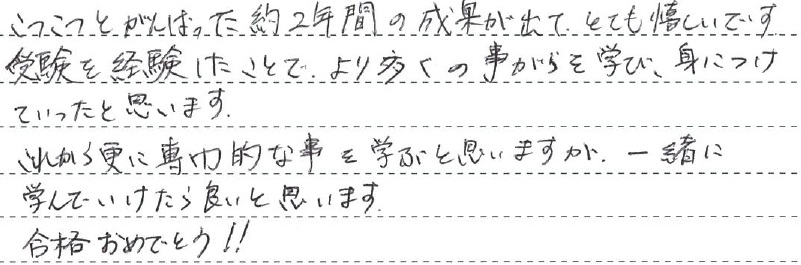 こつこつとがんばった約2年間の成果が出て、とても嬉しいです
受験を経験したことで、より多くの事がらを学び、身につけ
ていったと思います。
これから更に専門的な事を学ぶと思いますが、一緒に
学んでいけたら良いと思います。
合格おめでとう!!